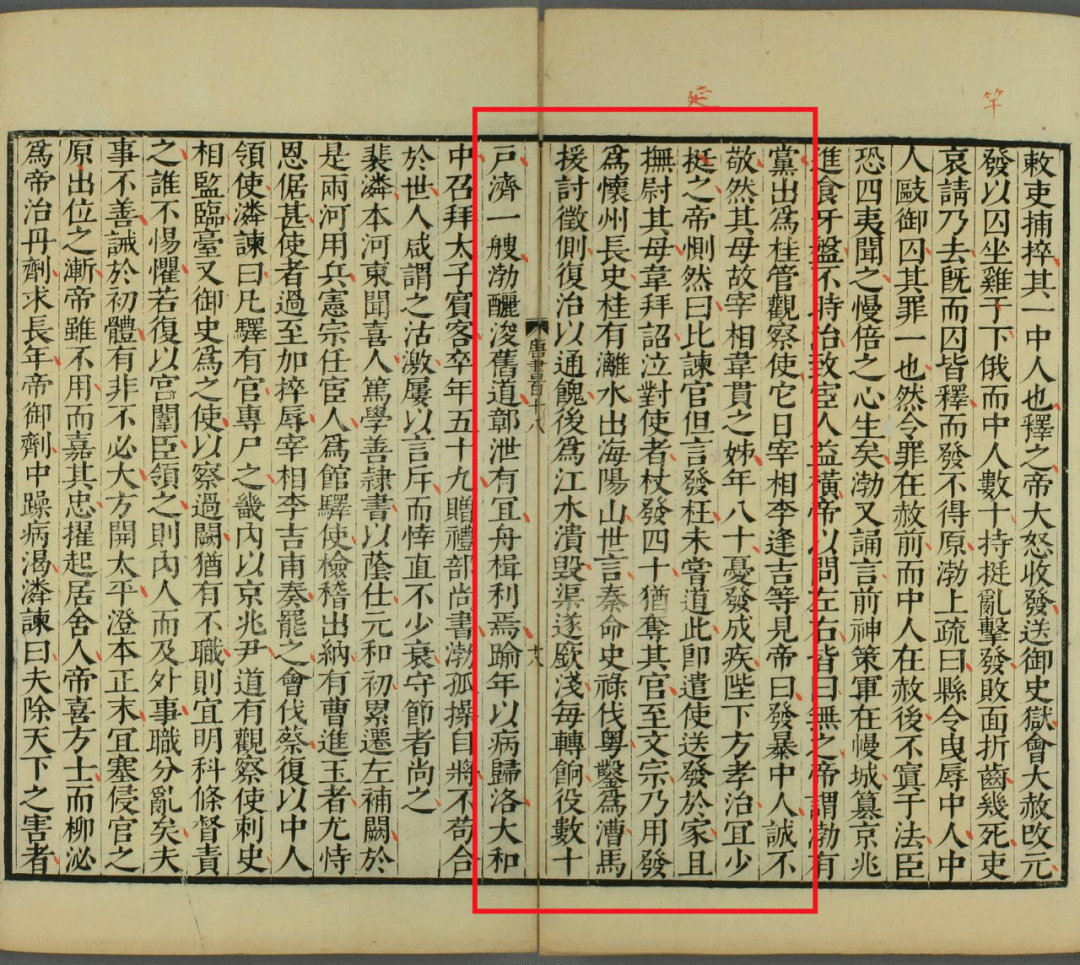 延
竿
敕吏捕捽其一中人也釋之帝大怒收發送御史獄會大赦改元
發以囚坐雞干下俄而中人數十持挺亂擊發敗面折齒幾死吏
哀請乃去既而囚皆釋而發不得原渤上疏曰縣令曳辱中人中
人毆御囚其罪一也然今罪在赦前而中人在赦後不寘于法臣
恐四夷聞之慢倍之心生矣渤又誦言前神策軍在幔城篡京兆
進食牙盤不時治致宦人益橫帝以問左右皆曰無之帝謂渤有
黨出爲桂管觀察使它日宰相李逢吉等見帝曰發暴中人誠不
敬然其母故宰相韋貫之姊年八十憂發成疾陛下方孝治宜少
挺之帝惻然曰比諫官但言發枉未嘗道此卽遣使送發於家且
撫尉其母韋拜詔泣對使者杖發四十猶奪其官至文宗乃用發
爲懷州長史桂有灕水出海陽山世言秦命史祿伐粵鑿爲漕馬
援討徵側復治以通餽後爲江水潰毀渠遂廞淺每轉餉役數十
唐書百十八
十八
戶濟一艘渤釃浚舊道鄣泄有宜舟楫利焉踰年以病歸洛大和
中召拜太子賓客卒年五十九贈禮部尚書渤孤操自將不苟合
於世人咸謂之沽激屢以言斥而悻直不少衰守節者尚之
裴潾本河東聞喜人篤學善隸書以蔭仕元和初累遷左補闕於
是兩河用兵憲宗任宦人爲館驛使檢稽出納有曹進玉者尤恃
恩倨甚使者過至加捽辱宰相李吉甫奏罷之會伐蔡復以中人
領使潾諫曰凡驛有官專尸之畿內以京兆尹道有觀察使刺史
相監臨臺又御史爲之使以察過闕猶有不職則宜明科條督責
之誰不惕懼若復以宮闈臣領之則內人而及外事職分亂矣夫
事不善誡於初體有非不必大方開太平澄本正末宜塞侵官之
原出位之漸帝雖不用而嘉其忠擢起居舍人帝喜方士而柳泌
爲帝治丹劑求長年帝御劑中躁病渴潾諫曰夫除天下之害者